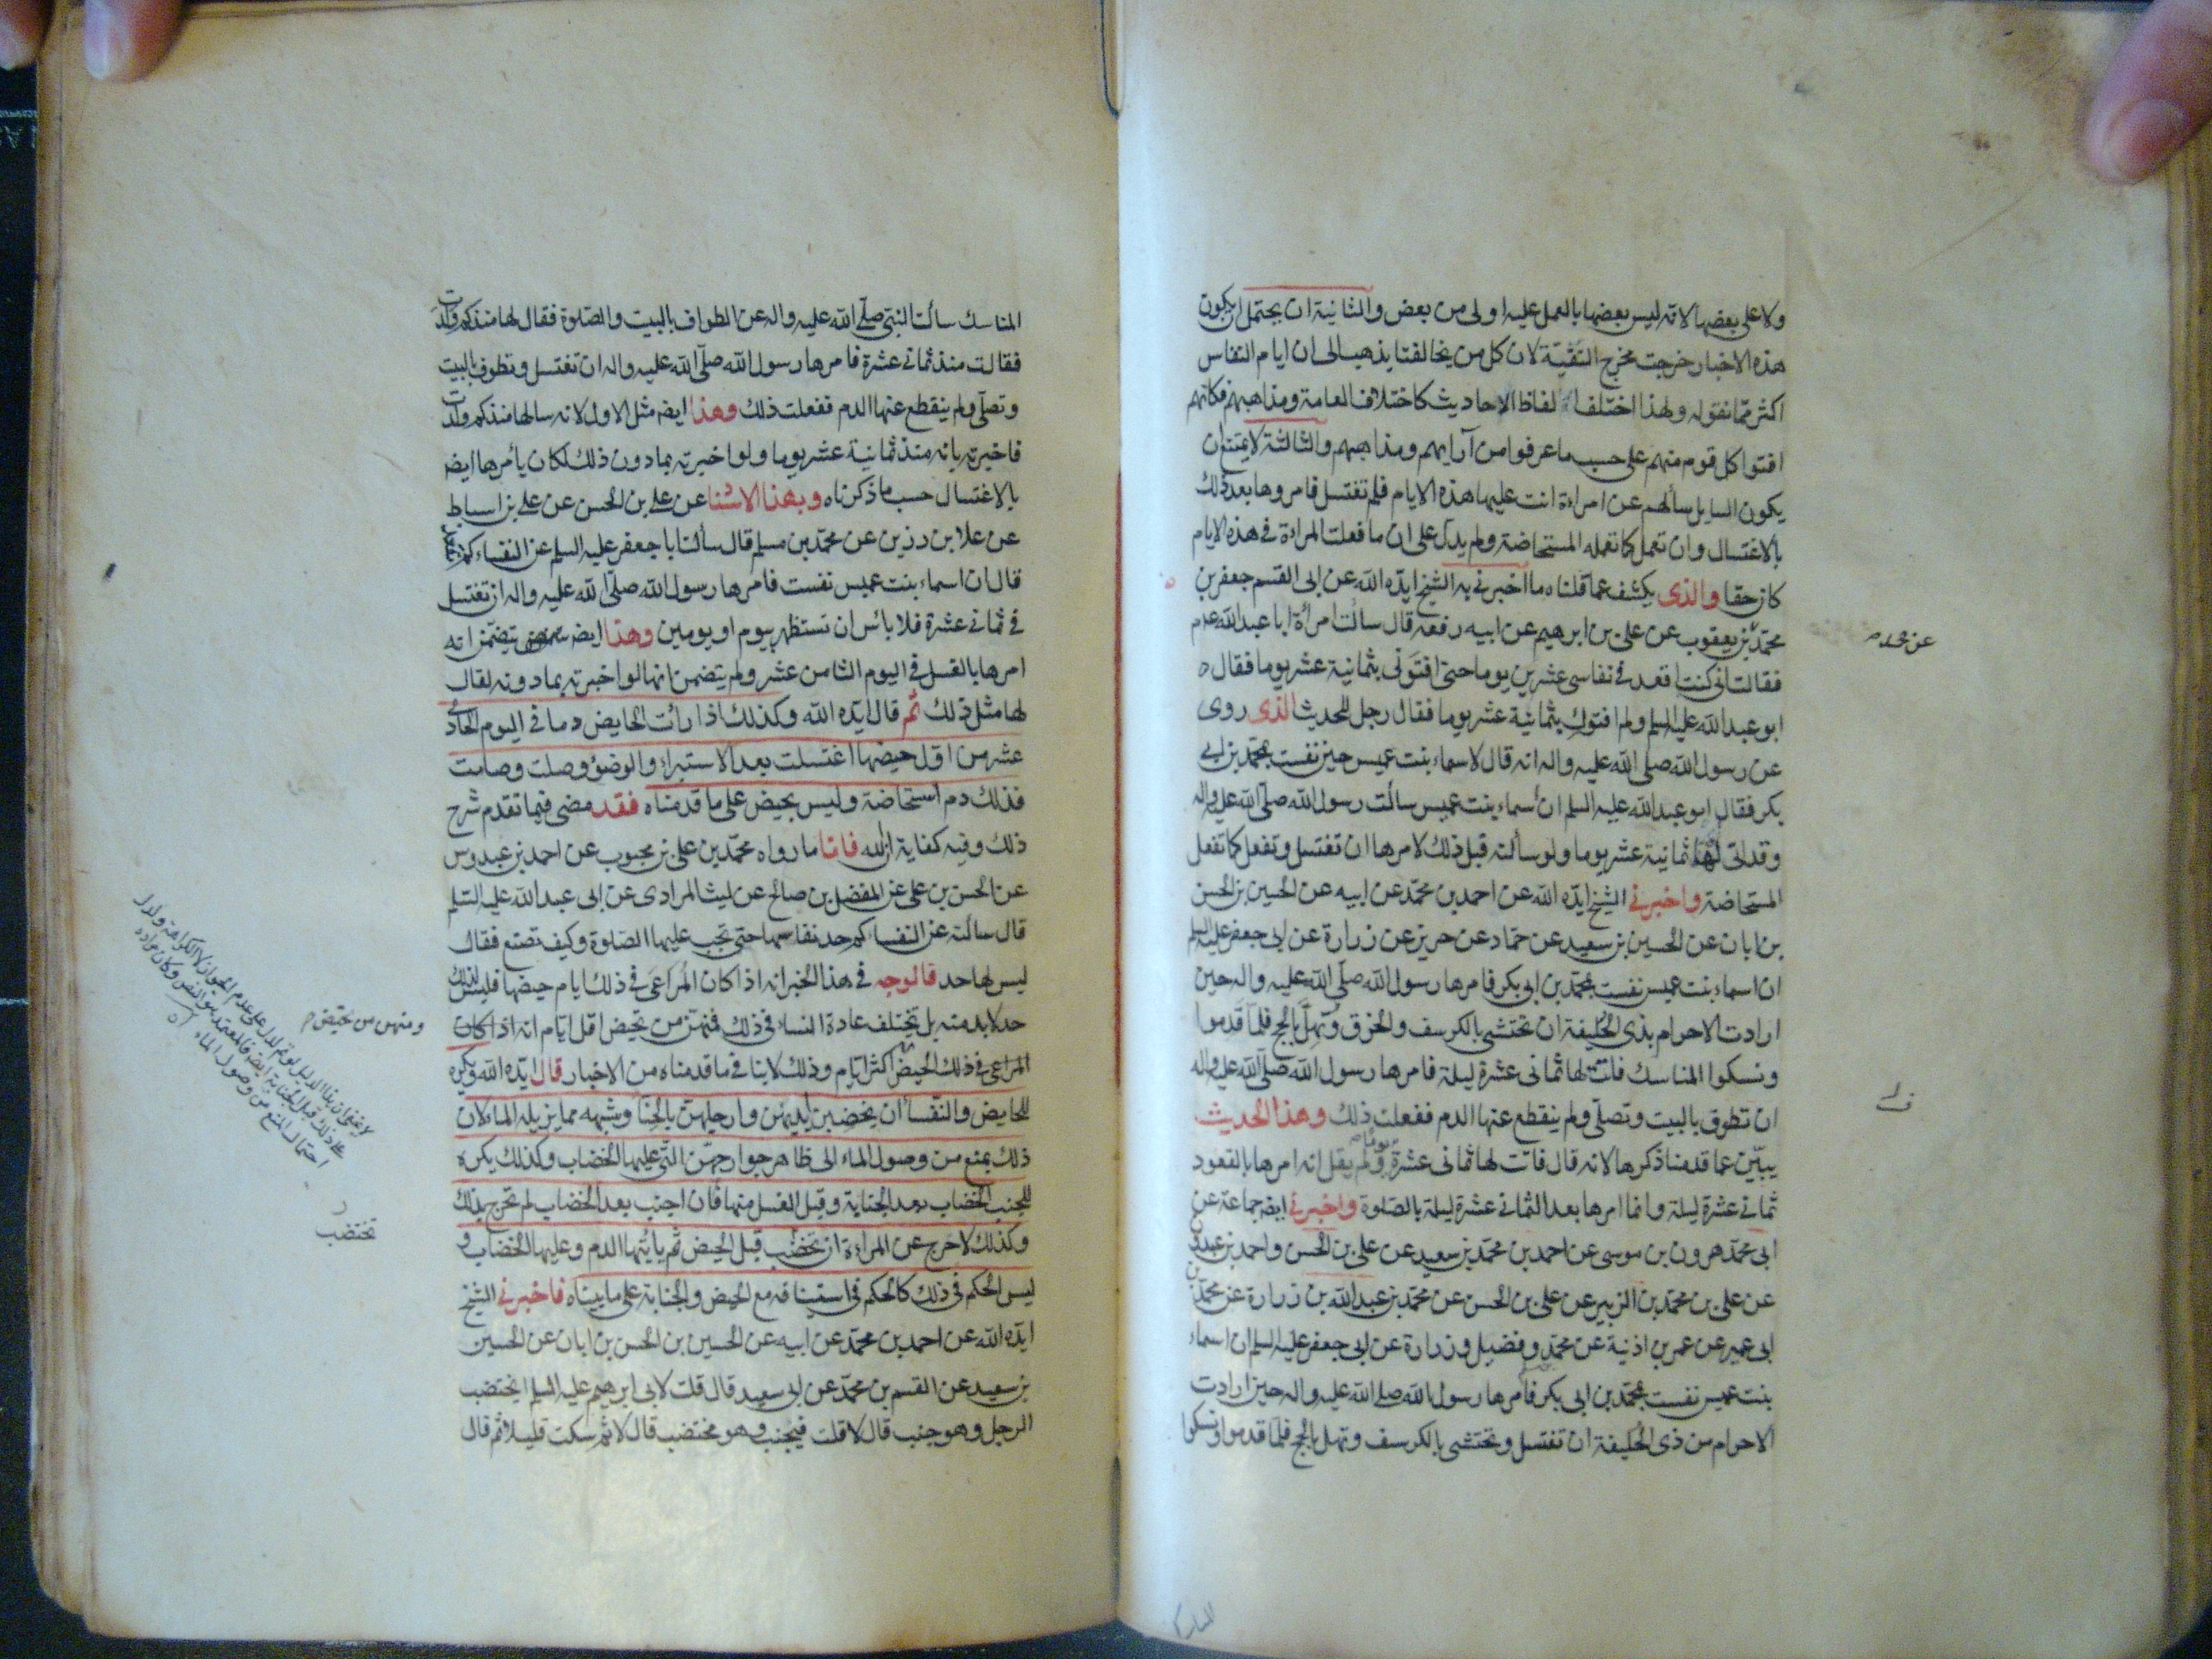 ولا على بعضها لانه ليس بعضها بالعمل عليه اولى من بعض والثانية ان يحتمل ان يكون
هذه الاخبار خرجت مخرج التقية لان كل من يخالفنا يذهب الى ان ايام النفاس
اكثر مما نقوله ولهذا اختلف الفاظ الاحاديث كاختلاف العامة ومذاهبهم فكانهم
افتوا كل قوم منهم على حسب ما عرفوا من آرايهم ومذاهبهم والثالثة لا يمتنع ان
يكون السايل سألهم عن امراءة اتت عليها هذه الايام فلم تغتسل فامروها بعد ذلك
بالاغتسال وان تعمل كما تعمله المستحاضة ولم يدل على ان ما فعلت المراءة في هذه الايام
كان حقا والذى يكشف عما قلناه ما اخبرنى به الشيخ ايده الله عن ابى القسم جعفر بن
محمد بن يعقوب عن على بن ابرهيم عن ابيه رفعه قال سألت امرأة ابا عبد الله عم
فقالت انى كنت اقعد فى نفاسى عشرين يوما حتى افتونى بثمانية عشر يوما فقال
ابو عبد الله عليه السلم ولم افتوك بثمانية عشر يوما فقال رجل للحديث الذى روى
عن رسول الله صلى الله عليه واله انه قال لاسماء بنت عميس حين نفست بمحمد بن ابى
بكر فقال ابو عبد الله عليه السلم ان أسماء بنت عميس سألت رسول الله صلى الله عليه واله
وقد اتى لها ثمانية عشر يوما ولو سألته قبل ذلك لامرها ان تغتسل وتفعل كما تفعل
المستحاضة واخبرنى الشيخ ايده الله عن احمد بن محمد عن ابيه عن الحسين بن الحسن
بن ابان عن الحسين بن سعيد عن حماد عن حريز عن زرارة عن ابى جعفر عليه السلم
ان اسماء بنت عميس نفست بمحمد بن ابى بكر فامرها رسول الله صلى الله عليه واله حين
ارادت الاحرام بذى الحليفة ان تحتشى بالكرسف والخرق وتهل بالحج فلما قدموا
ونسكوا المناسك فاتت لها ثمانى عشرة ليلة فامرها رسول الله صلى الله عليه واله
ان تطوف بالبيت وتصلى ولم ينقطع عنها الدم ففعلت ذلك وهذا الحديث
يبين عما قدمنا ذكرها لانه قال فاتت لها ثمانى عشرة يوما ولم يقل انه امرها بالقعود
ثمانى عشرة ليلة وانما امرها بعد الثمانى عشرة ليلة بالصلوة واخبرنى ايضا جماعة عن
ابى محمد هرون بن موسى عن احمد بن محمد بن سعيد عن على بن الحسن واحمد بن عبدون
عن على بن محمد بن الزبير عن على بن الحسن عن محمد بن عبد الله بن زرارة عن محمد بن
ابى عمير عن عمر بن اذنية عن محمد وفضيل وزرارة عن ابى جعفر عليه السلم ان اسماء
بنت عميس نفست بمحمد بن ابى بكر فامرها رسول الله صلى الله عليه واله حين ارادت
الاحرام من ذى الحليفة ان تغتسل وتحتشى بالكرسف وتهل بالحج فلما قدموا ونسكوا
عن محمد م
المناسك
المناسك سألت النبى صلى الله عليه واله عن الطواف بالبيت والصلوة فقال لها منذ كم ولدت
فقالت منذ ثمانى عشرة فامرها رسول الله صلى الله عليه واله ان تغتسل وتطوف بالبيت
وتصلى ولم ينقطع عنها الدم ففعلت ذلك وهذا ايضا مثل الاول لانه سالها منذ كم ولدت
فاخبرته بانه منذ ثمانية عشر يوما ولو اخبرته بما دون ذلك لكان يأمرها ايضا
بالاغتسال حسب ما ذكرناه وبهذا الاسنا عن على بن الحسن عن على بن اسباط
عن علا بن رزين عن محمد بن مسلم قال سألت ابا جعفر عليه السلم عن النفساء كم تقعد
قال ان اسماء بنت عميس نفست فامرها رسول الله صلى الله عليه واله ان تغتسل
فى ثمانى عشرة فلا بأس ان تستظهر بيوم او يومين وهذا ايضا يتضمن انه
امرها بالغسل فى اليوم الثامن عشر ولم يتضمن انها لو اخبرته بما دونه لقال
لها مثل ذلك ثم قال ايده الله وكذلك اذا رأت الحايض دما فى اليوم الحادى
عشر من اول حيضها اغتسلت بعد الاستبراء والوضؤ وصلت وصامت
فذلك دم استحاضة وليس بحيض على ما قدمناه فقد مضى فيما تقدم شرح
ذلك وفيه كفاية ان الله فاما ما رواه محمد بن على بن محبوب عن احمد بن عبدوس
عن الحسن بن على عن المفضل بن صالح عن ليث المرادى عن ابى عبد الله عليه السلم
قال سألته عن النفساء كم حد نفاسها حتى تجب عليها الصلوة وكيف تصنع فقال
ليس لها حد فالوجه فى هذا الخبر انه اذا كان المراعى فى ذلك ايام حيضها فليس لذلك
حد لابد منه بل تختلف عادة النساء فى ذلك فمنهن من تحيض اقل ايام انه اذا كان
المراعى فى ذلك الحيض اكثر ايام وذلك لا ينافى ما قدمناه من الاخبار قال ايده الله ويكره
للحايض والنفسأ ان يخضبن ايديهن وارجلهن بالحنا وشبهه مما يزيله الما لان
ذلك يمنع من وصول الماء الى ظاهر جوارحهن التى عليها الخضاب وكذلك يكره
للجنب الخضاب بعد الجنابة وقبل الغسل منها فان اجنب بعد الخضاب لم تحرج بذلك
وكذلك لا حرج عن المراءة ان تخضب قبل الحيض ثم يأتيها الدم وعليها الخضاب و
ليس الحكم فى ذلك كالحكم فى استينافه مع الحيض والجنابة على ما بيناه فاخبرنى الشيخ
ايده الله عن احمد بن محمد عن ابيه عن الحسين بن الحسن بن ابان عن الحسين
بن سعيد عن القسم بن محمد عن ابى سعيد قال قلت لابى ابرهيم عليه السلم ايختضب
الرجل وهو جنب قال لا قلت فيجنب وهو مختضب قال لا ثم سكت قليلا ثم قال
ومنهن من تحيض م
تختضب